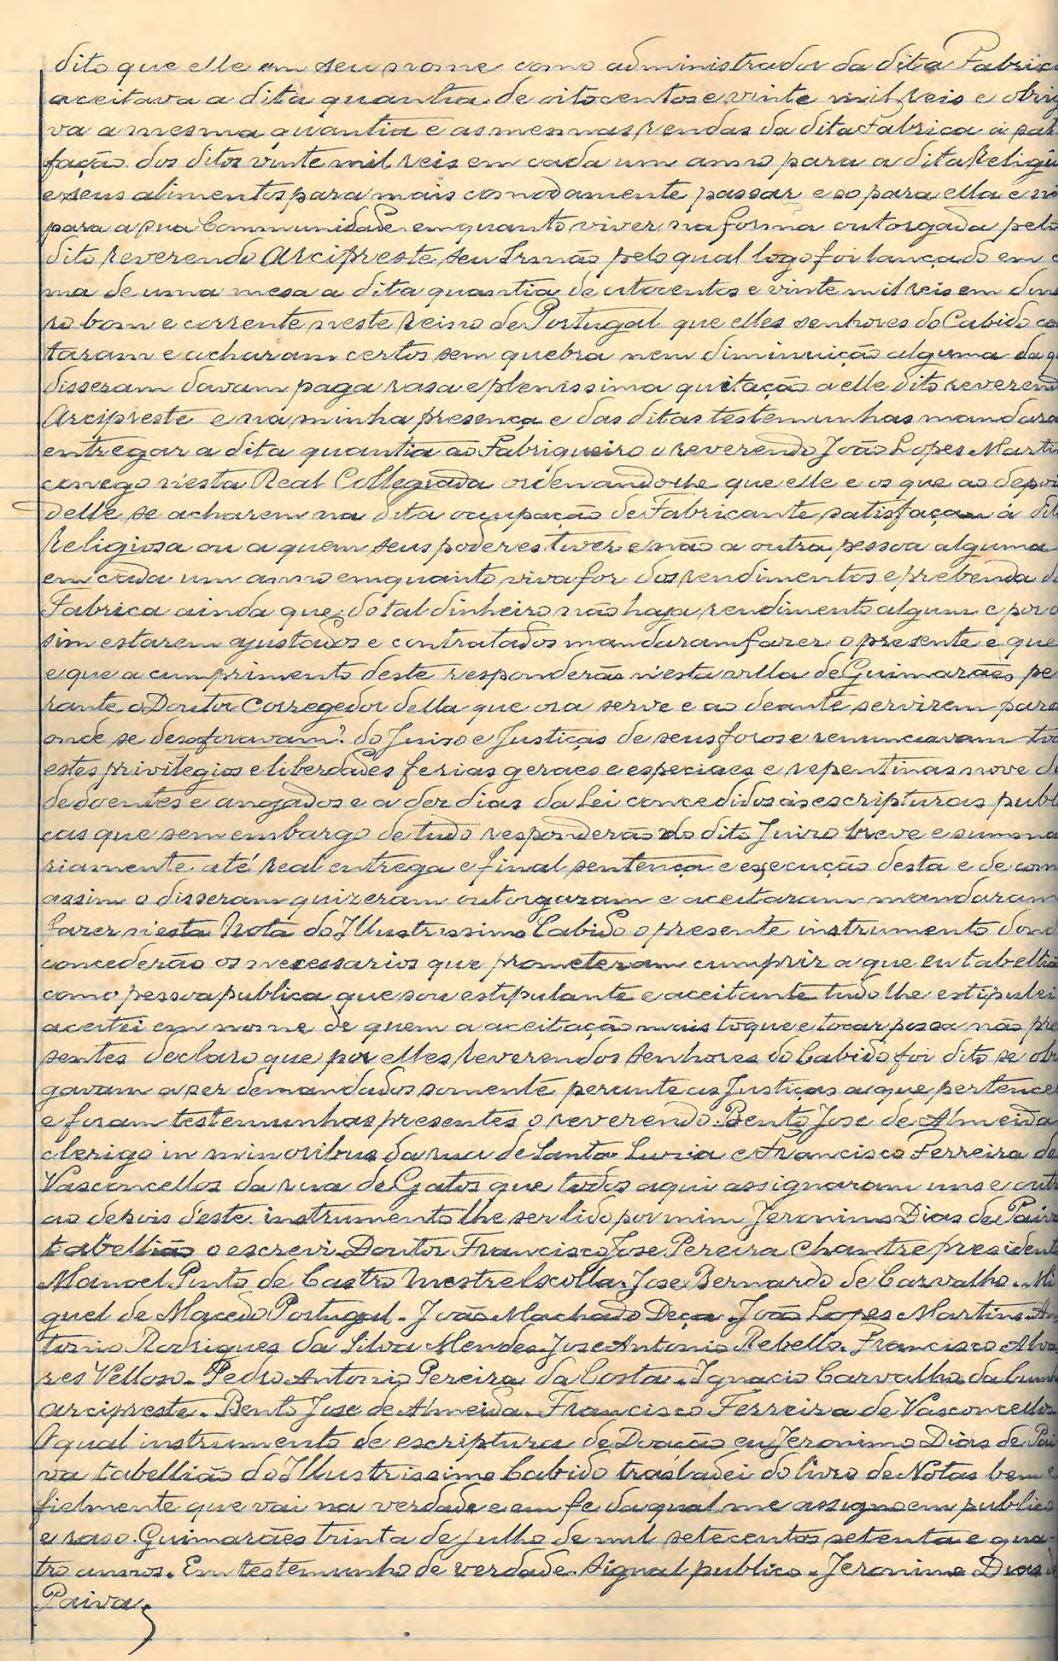 dito que elle em seu nome como administrador da dita Fabric
aceitava a dita quantia de oitocentos e vinte mil reis e obrig
va a mesma quantia e as mesmas rendas da dita Fabrica á satis
fação dos ditos vinte mil reis em cada um anno para a dita Religi
e seus alimentos para mais comodamente passar e so para ella e nã
para a sua Communidade emquanto viver na forma outorgada pelo
dito reverendo Arcipreste, seu Irmão pelo qual logo foi lançado em ci
ma de uma mesa a dita quantia de oitocentos e vinte mil reis em dinh
ro bom e corrente neste reino de Portugal que elles senhores do Cabido con
taram e acharam certos sem quebra nem diminuição alguma da q
disseram davam paga rasa e plenissima quitação a elle dito reveren
Arcipreste e na minha presença e das ditas testemunhas mandara
entregar a dita quantia ao Fabriqueiro o reverendo João Lopes Marti
conego n'esta Real Collegiada ordenando-lhe que elle e os que ao depoi
delle se acharem na dita ocupação de Fabricante satisfaçam á dit
Religiosa ou a quem seus poderes tiver e não a outra pessoa alguma
em cada um anno emquanto viva for dos rendimentos e prebenda da
Fabrica ainda que do tal dinheiro não haja rendimento algum e por a
sim estarem ajustados e contratados mandaram fazer o presente e que
e que a cumprimento deste responderão n'esta villa de Guimarães pe
rante o Doutor Corregedor della que ora serve e ao deante servirem para
onde se desaforavam? do Juiso e Justiças de seus foros e renunciavam tod
estes privilegios e liberdades ferias geraes e especiaes e repentinas nove di
de doentes e anojados e a der dias da Lei concedidos ás escripturas publ
cas que sem embargo de tudo responderão no dito Juizo breve e summa
riamente até real entrega e final sentença e execução desta e de com
assim o disseram quizeram outorgaram e aceitaram mandaram
fazer n'esta Nota do Illustrissimo Cabido o presente instrumento dond
concederão os necessarios que prometeram cumprir a que eu tabelliã
como pessoa publica que sou estipulante e aceitante tudo lhe estipulei
aceitei em nome de quem a aceitação mais toque e tocar possa não pre
sentes declaro que por elles reverendos senhores do Cabido foi dito se obr
gavam a ser demandados somente perante as Justiças a que pertencer
e foram testemunhas presentes o reverendo Bento Jose de Almeida
clerigo in minoribus da rua de Santa Luzia e Francisco Ferreira de
Vasconcellos da rua de Gatos que todos aqui assignaram uns e outr
ao depois d'este instrumento lhe ser lido por mim Jeronimo Dias de Paiva
tabellião o escrevi. Doutor Francisco Jose Pereira Chantre presidente
Manoel Pinto de Castro Mestre Escolla. Jose Bernardo de Carvalho. Mi
guel de Macedo Portugal. João Machado Deça. João Lopes Martins. An
tonio Rodrigues da Silva Mendes. Jose Antonio Rebello. Francisco Alva
res Velloso. Pedro Antonio Pereira da Costa. Ignacio Carvalho da Cunh
arcipreste. Bento Jose de Almeida. Francisco Ferreira de Vasconcellos
O qual instrumento de escriptura de Doação eu Jeronimo Dias de Pai
va tabellião do Illustrissimo Cabido trasladei do livro de Notas bem e
fielmente que vai na verdade e em fe da qual me assigno em publico
e raso. Guimarães trinta de julho de mil setecentos setenta e qua-
tro annos. Em testemunho de verdade. Signal publico. Jeronimo Dias de
Paiva